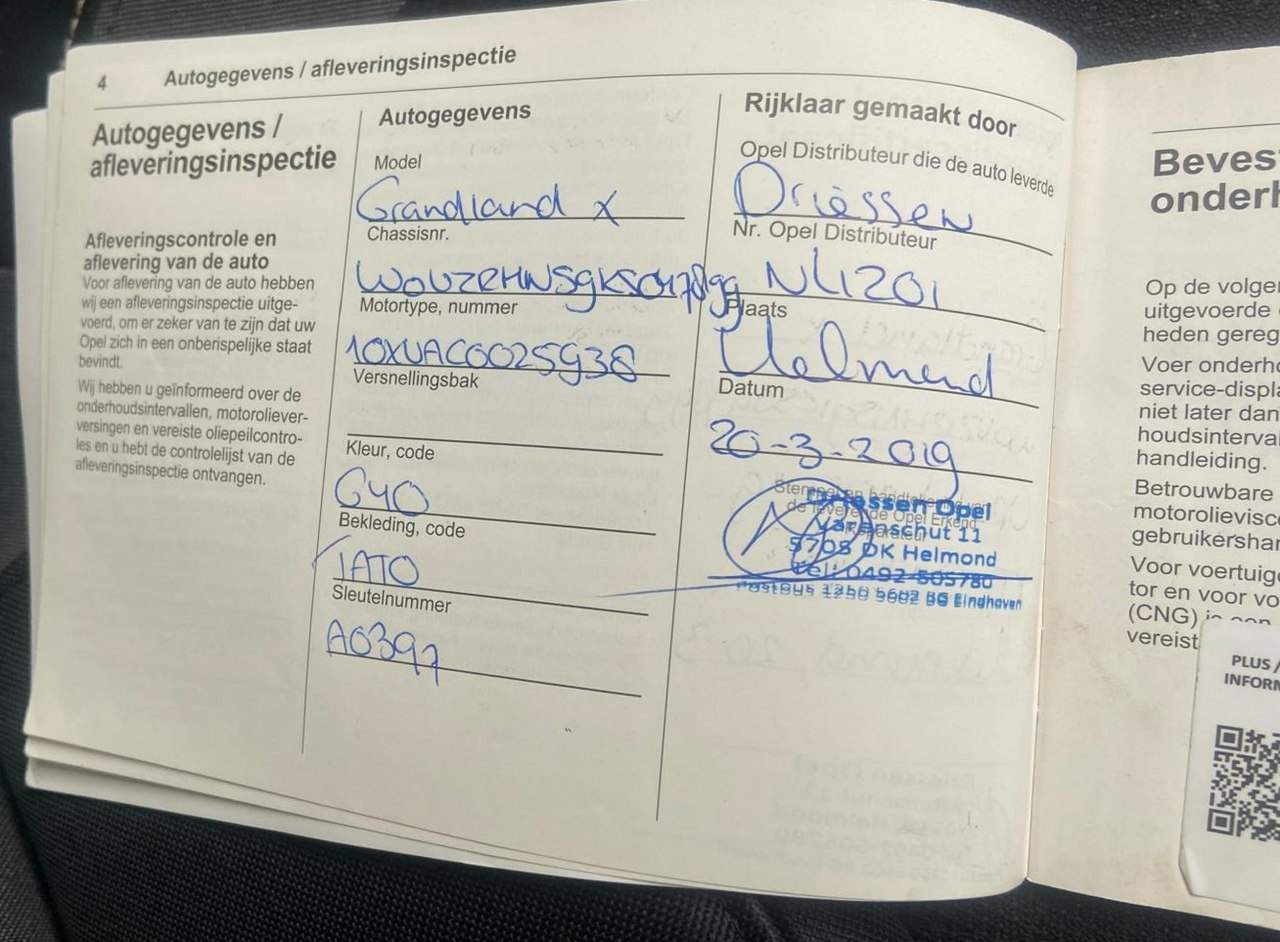 4 Autogegevens / afleveringsinspectie
Autogegevens /
afleveringsinspectie
Afleveringscontrole en
aflevering van de auto
Voor aflevering van de auto hebben
wij een afleveringsinspectie uitge-
voerd, om er zeker van te zijn dat uw
Opel zich in een onberispelijke staat
bevindt.
Wij hebben u geïnformeerd over de
onderhoudsintervallen, motoroliever-
versingen en vereiste oliepeilcontro-
les en u hebt de controlelijst van de
afleveringsinspectie ontvangen.
Autogegevens
Model
Grandland X
Chassisnr.
Motortype, nummer
10XUAC0025938
Versnellingsbak
Kleur, code
G40
Bekleding, code
IATO
Sleutelnummer
A0397
Rijklaar gemaakt door
Opel Distributeur die de auto leverde
Driessen
Nr. Opel Distributeur
NL1201
Plaats
Helmond
Datum
20-3-2019
Driessen Opel
Varenschut 11
5705 DK Helmond
Tel: 0492-505780
Eindhoven
Beves
onderh
Op de volgen
uitgevoerde
heden gereg
Voer onderho
service-displa
niet later dan
houdsinterval
handleiding.
Betrouwbare
motorolievisc
gebruikershan
Voor voertuige
tor en voor vo
(CNG) is een
vereist
PLUS /
INFORM